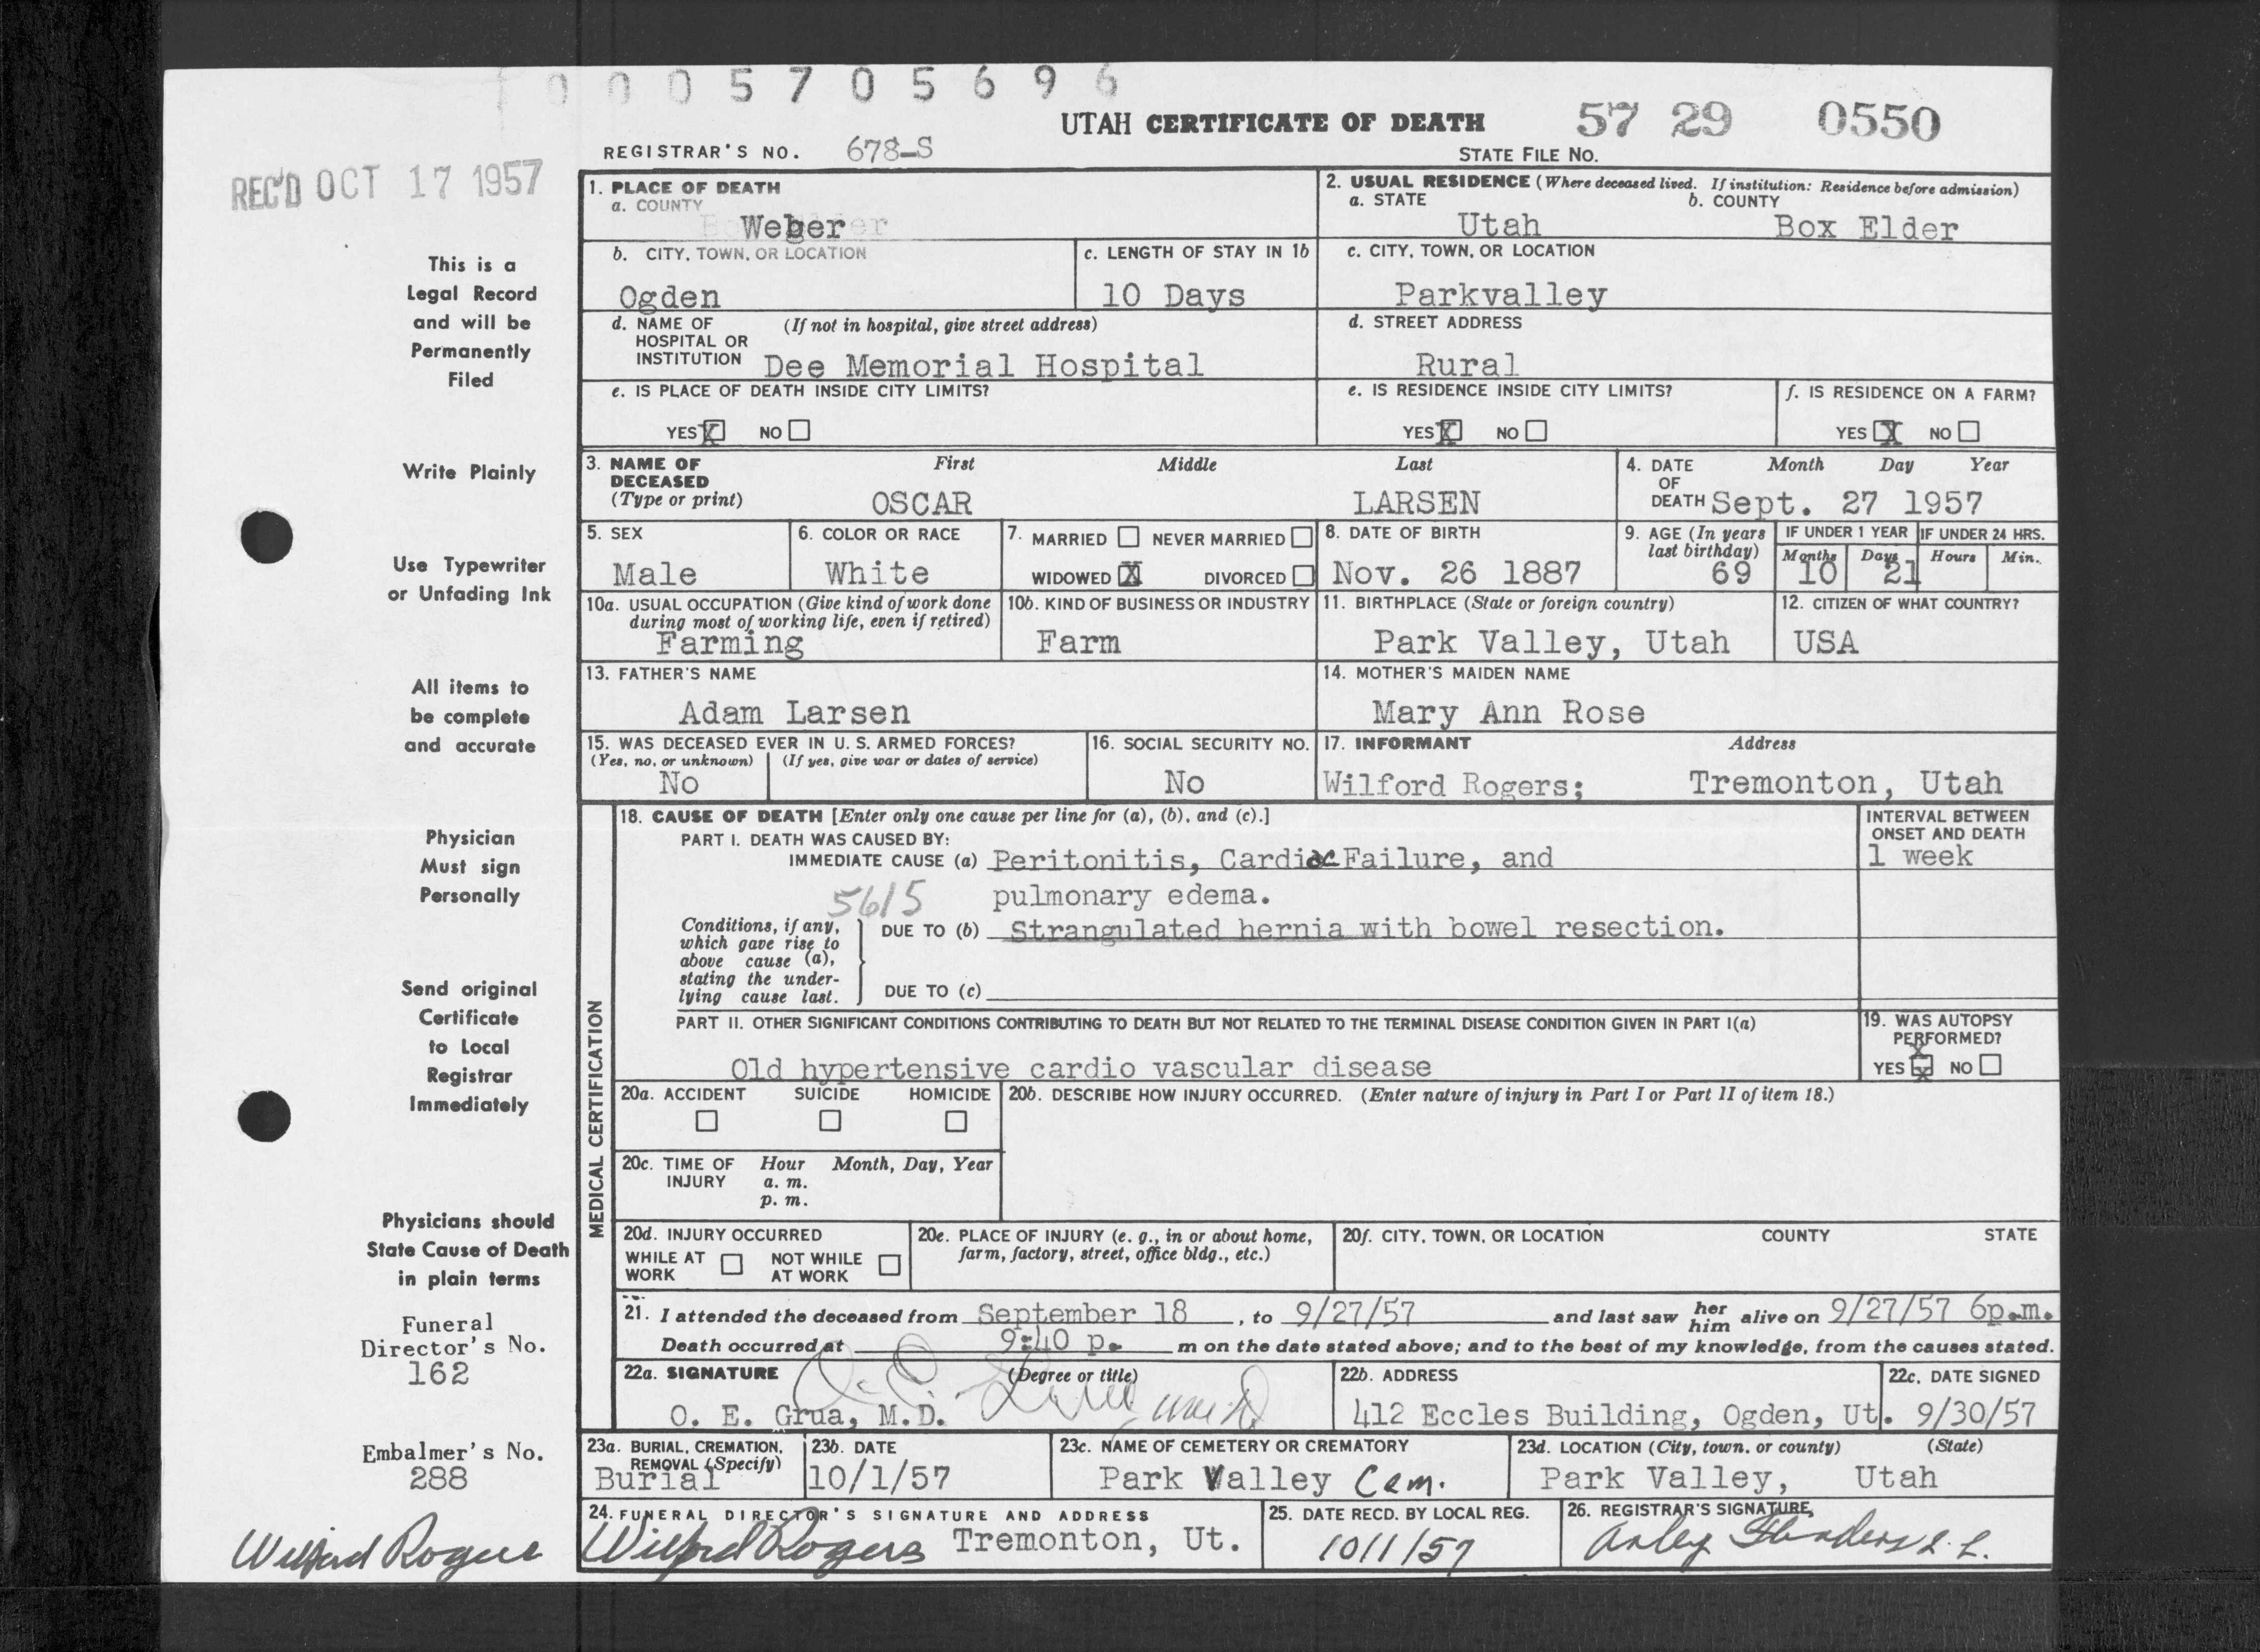 0005705696
UTAH CERTIFICATE OF DEATH 57 29 0550
REGISTRAR'S NO. 678-S STATE FILE NO.
REC'D OCT 17 1957
This is a
Legal Record
and will be
Permanently
Filed
Write Plainly
Use Typewriter
or Unfading Ink
All items to
be complete
and accurate
Physician
Must sign
Personally
Send original
Certificate
to Local
Registrar
Immediately
Physicians should
State Cause of Death
in plain terms
Funeral
Director's No.
162
Embalmer's No.
288
Wilford Rogers
1. PLACE OF DEATH
a. COUNTY
Weber
2. USUAL RESIDENCE (Where deceased lived. If institution: Residence before admission)
a. STATE b. COUNTY
Utah Box Elder
b. CITY, TOWN, OR LOCATION
Ogden
c. LENGTH OF STAY IN 1b
10 Days
c. CITY, TOWN, OR LOCATION
Parkvalley
d. NAME OF (If not in hospital, give street address)
HOSPITAL OR
INSTITUTION Dee Memorial Hospital
d. STREET ADDRESS
Rural
e. IS PLACE OF DEATH INSIDE CITY LIMITS?
YES X NO
e. IS RESIDENCE INSIDE CITY LIMITS?
YES X NO
f. IS RESIDENCE ON A FARM?
YES X NO
3. NAME OF First Middle Last
DECEASED
(Type or print) OSCAR LARSEN
4. DATE Month Day Year
OF
DEATH Sept. 27 1957
5. SEX
Male
6. COLOR OR RACE
White
7. MARRIED NEVER MARRIED
WIDOWED X DIVORCED
8. DATE OF BIRTH
Nov. 26 1887
9. AGE (In years
last birthday)
69
IF UNDER 1 YEAR
Months Days
10 21
IF UNDER 24 HRS.
Hours Min.
10a. USUAL OCCUPATION (Give kind of work done
during most of working life, even if retired)
Farming
10b. KIND OF BUSINESS OR INDUSTRY
Farm
11. BIRTHPLACE (State or foreign country)
Park Valley, Utah
12. CITIZEN OF WHAT COUNTRY?
USA
13. FATHER'S NAME
Adam Larsen
14. MOTHER'S MAIDEN NAME
Mary Ann Rose
15. WAS DECEASED EVER IN U. S. ARMED FORCES?
(Yes, no, or unknown) (If yes, give war or dates of service)
No
16. SOCIAL SECURITY NO.
No
17. INFORMANT Address
Wilford Rogers; Tremonton, Utah
MEDICAL CERTIFICATION
18. CAUSE OF DEATH [Enter only one cause per line for (a), (b), and (c).]
PART I. DEATH WAS CAUSED BY:
IMMEDIATE CAUSE (a) Peritonitis, Cardiac Failure, and
5615 pulmonary edema.
INTERVAL BETWEEN
ONSET AND DEATH
1 week
Conditions, if any,
which gave rise to
above cause (a),
stating the under-
lying cause last.
DUE TO (b) Strangulated hernia with bowel resection.
DUE TO (c)
PART II. OTHER SIGNIFICANT CONDITIONS CONTRIBUTING TO DEATH BUT NOT RELATED TO THE TERMINAL DISEASE CONDITION GIVEN IN PART I(a)
Old hypertensive cardio vascular disease
19. WAS AUTOPSY
PERFORMED?
YES X NO
20a. ACCIDENT SUICIDE HOMICIDE
20b. DESCRIBE HOW INJURY OCCURRED. (Enter nature of injury in Part I or Part II of item 18.)
20c. TIME OF Hour Month, Day, Year
INJURY a. m.
p. m.
20d. INJURY OCCURRED
WHILE AT NOT WHILE
WORK AT WORK
20e. PLACE OF INJURY (e. g., in or about home,
farm, factory, street, office bldg., etc.)
20f. CITY, TOWN, OR LOCATION COUNTY STATE
21. I attended the deceased from September 18, to 9/27/57 and last saw her him alive on 9/27/57 6p.m.
Death occurred at 9:40 p. m on the date stated above; and to the best of my knowledge, from the causes stated.
22a. SIGNATURE (Degree or title)
O. E. Grua, M.D.
22b. ADDRESS
412 Eccles Building, Ogden, Ut.
22c. DATE SIGNED
9/30/57
23a. BURIAL, CREMATION,
REMOVAL (Specify)
Burial
23b. DATE
10/1/57
23c. NAME OF CEMETERY OR CREMATORY
Park Valley Cem.
23d. LOCATION (City, town, or county) (State)
Park Valley, Utah
24. FUNERAL DIRECTOR'S SIGNATURE AND ADDRESS
Wilford Rogers Tremonton, Ut.
25. DATE RECD. BY LOCAL REG.
10/1/57
26. REGISTRAR'S SIGNATURE